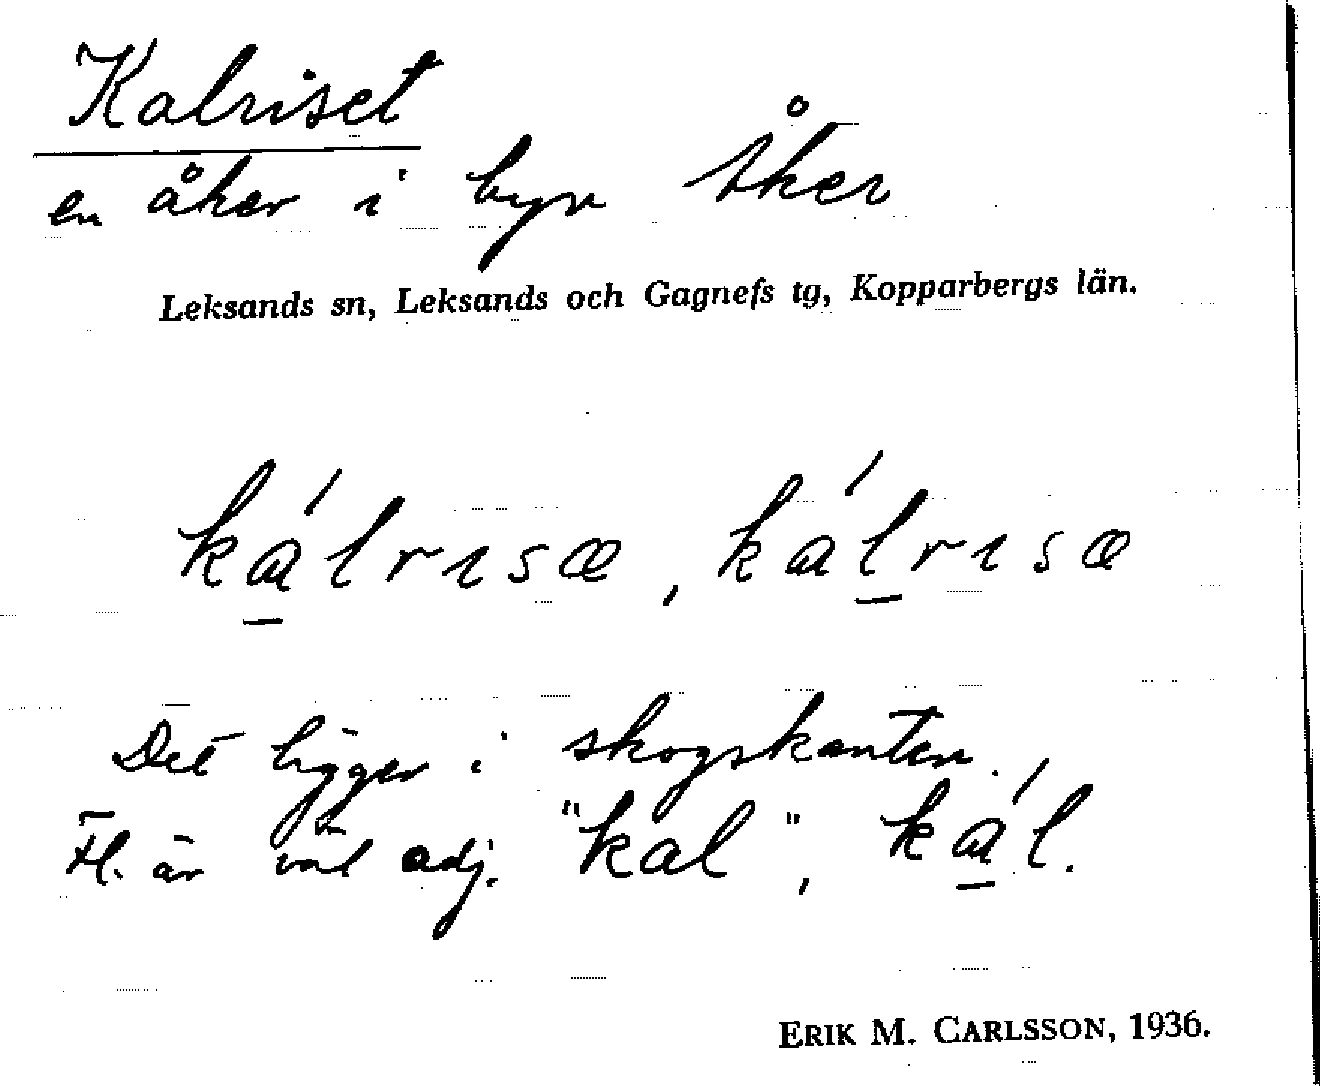 Kalriset
en åker i byn Åker
Leksands sn, Leksands och Gagnefs tg, Kopparbergs län.
ká̠lrisæ, kál̠risæ
Det ligger i skogskanten.
Fl. är väl adj. "kal", ká̠l.
ERIK M. CARLSSON, 1936.